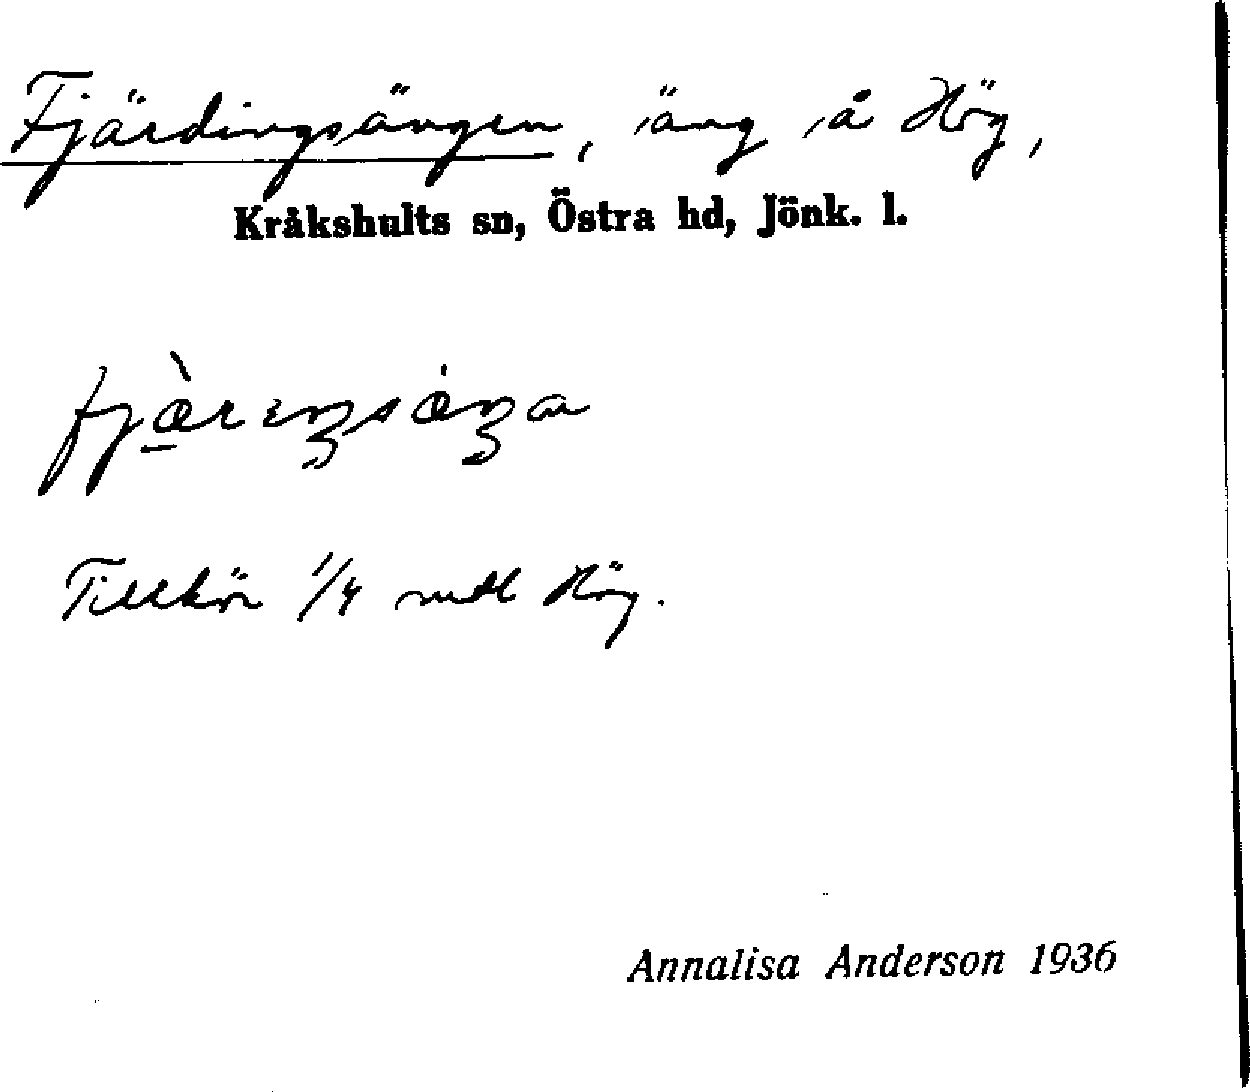 Fjärdingsängen, äng å Hög,
Kråkshults sn, Östra hd, Jönk. l.
fjæ̀reŋsæ̇ŋa
Tillhör 1/4 mtl Hög.
Annalisa Anderson 1936